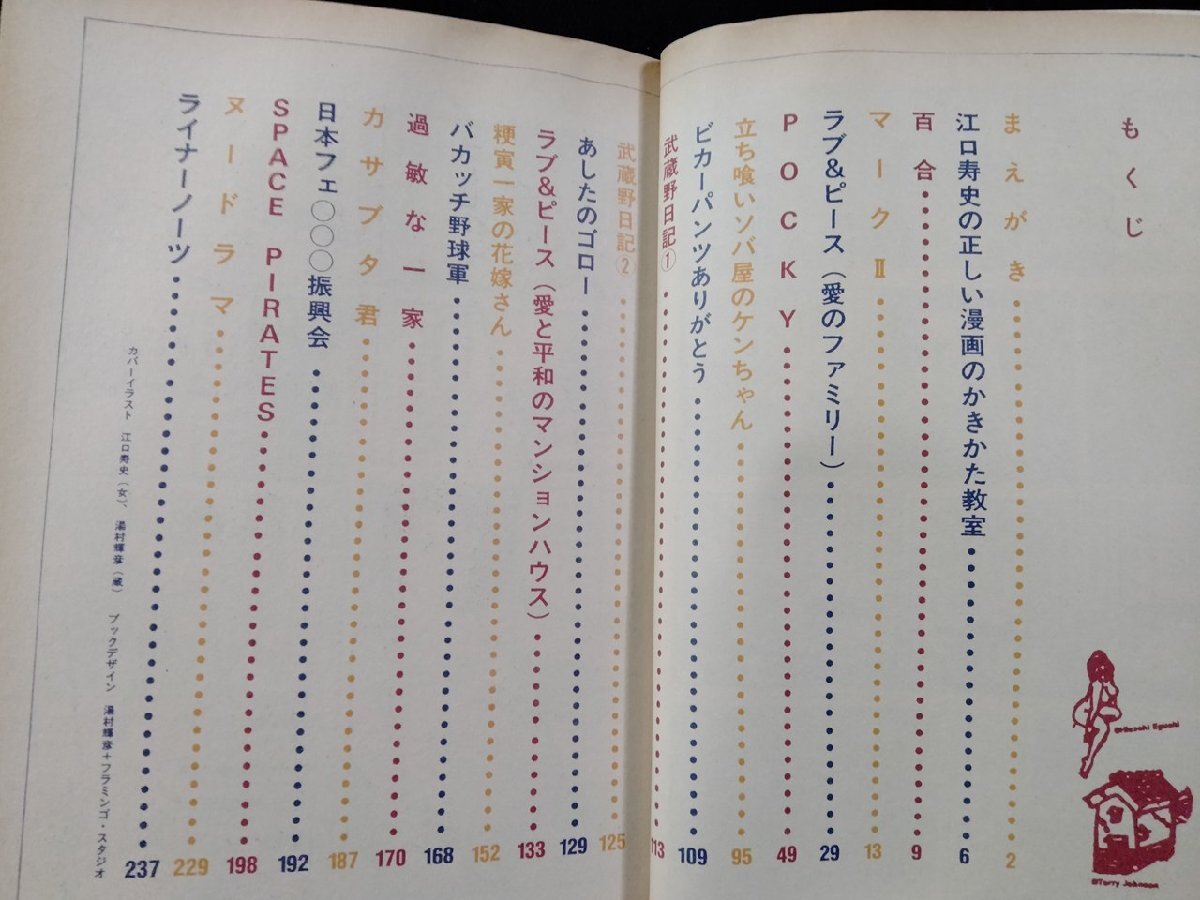 もくじ
まえがき 2
江口寿史の正しい漫画のかきかた教室 6
百合 9
マークⅡ 13
ラブ&ピース(愛のファミリー) 29
POCKY 49
立ち喰いソバ屋のケンちゃん 95
ビカーパンツありがとう 109
武蔵野日記① 113
武蔵野日記② 125
あしたのゴロー 129
ラブ&ピース(愛と平和のマンションハウス) 133
粳寅一家の花嫁さん 152
バカッチ野球軍 168
過敏な一家 170
カサブタ君 187
日本フェ〇〇〇振興会 192
SPACE PIRATES 198
ヌードラマ 229
ライナーノーツ 237
カバーイラスト 江口寿史(女)、湯村輝彦(家) ブックデザイン 湯村輝彦+フラミンゴ・スタジオ
©Hisashi Eguchi
©Terry Johnson